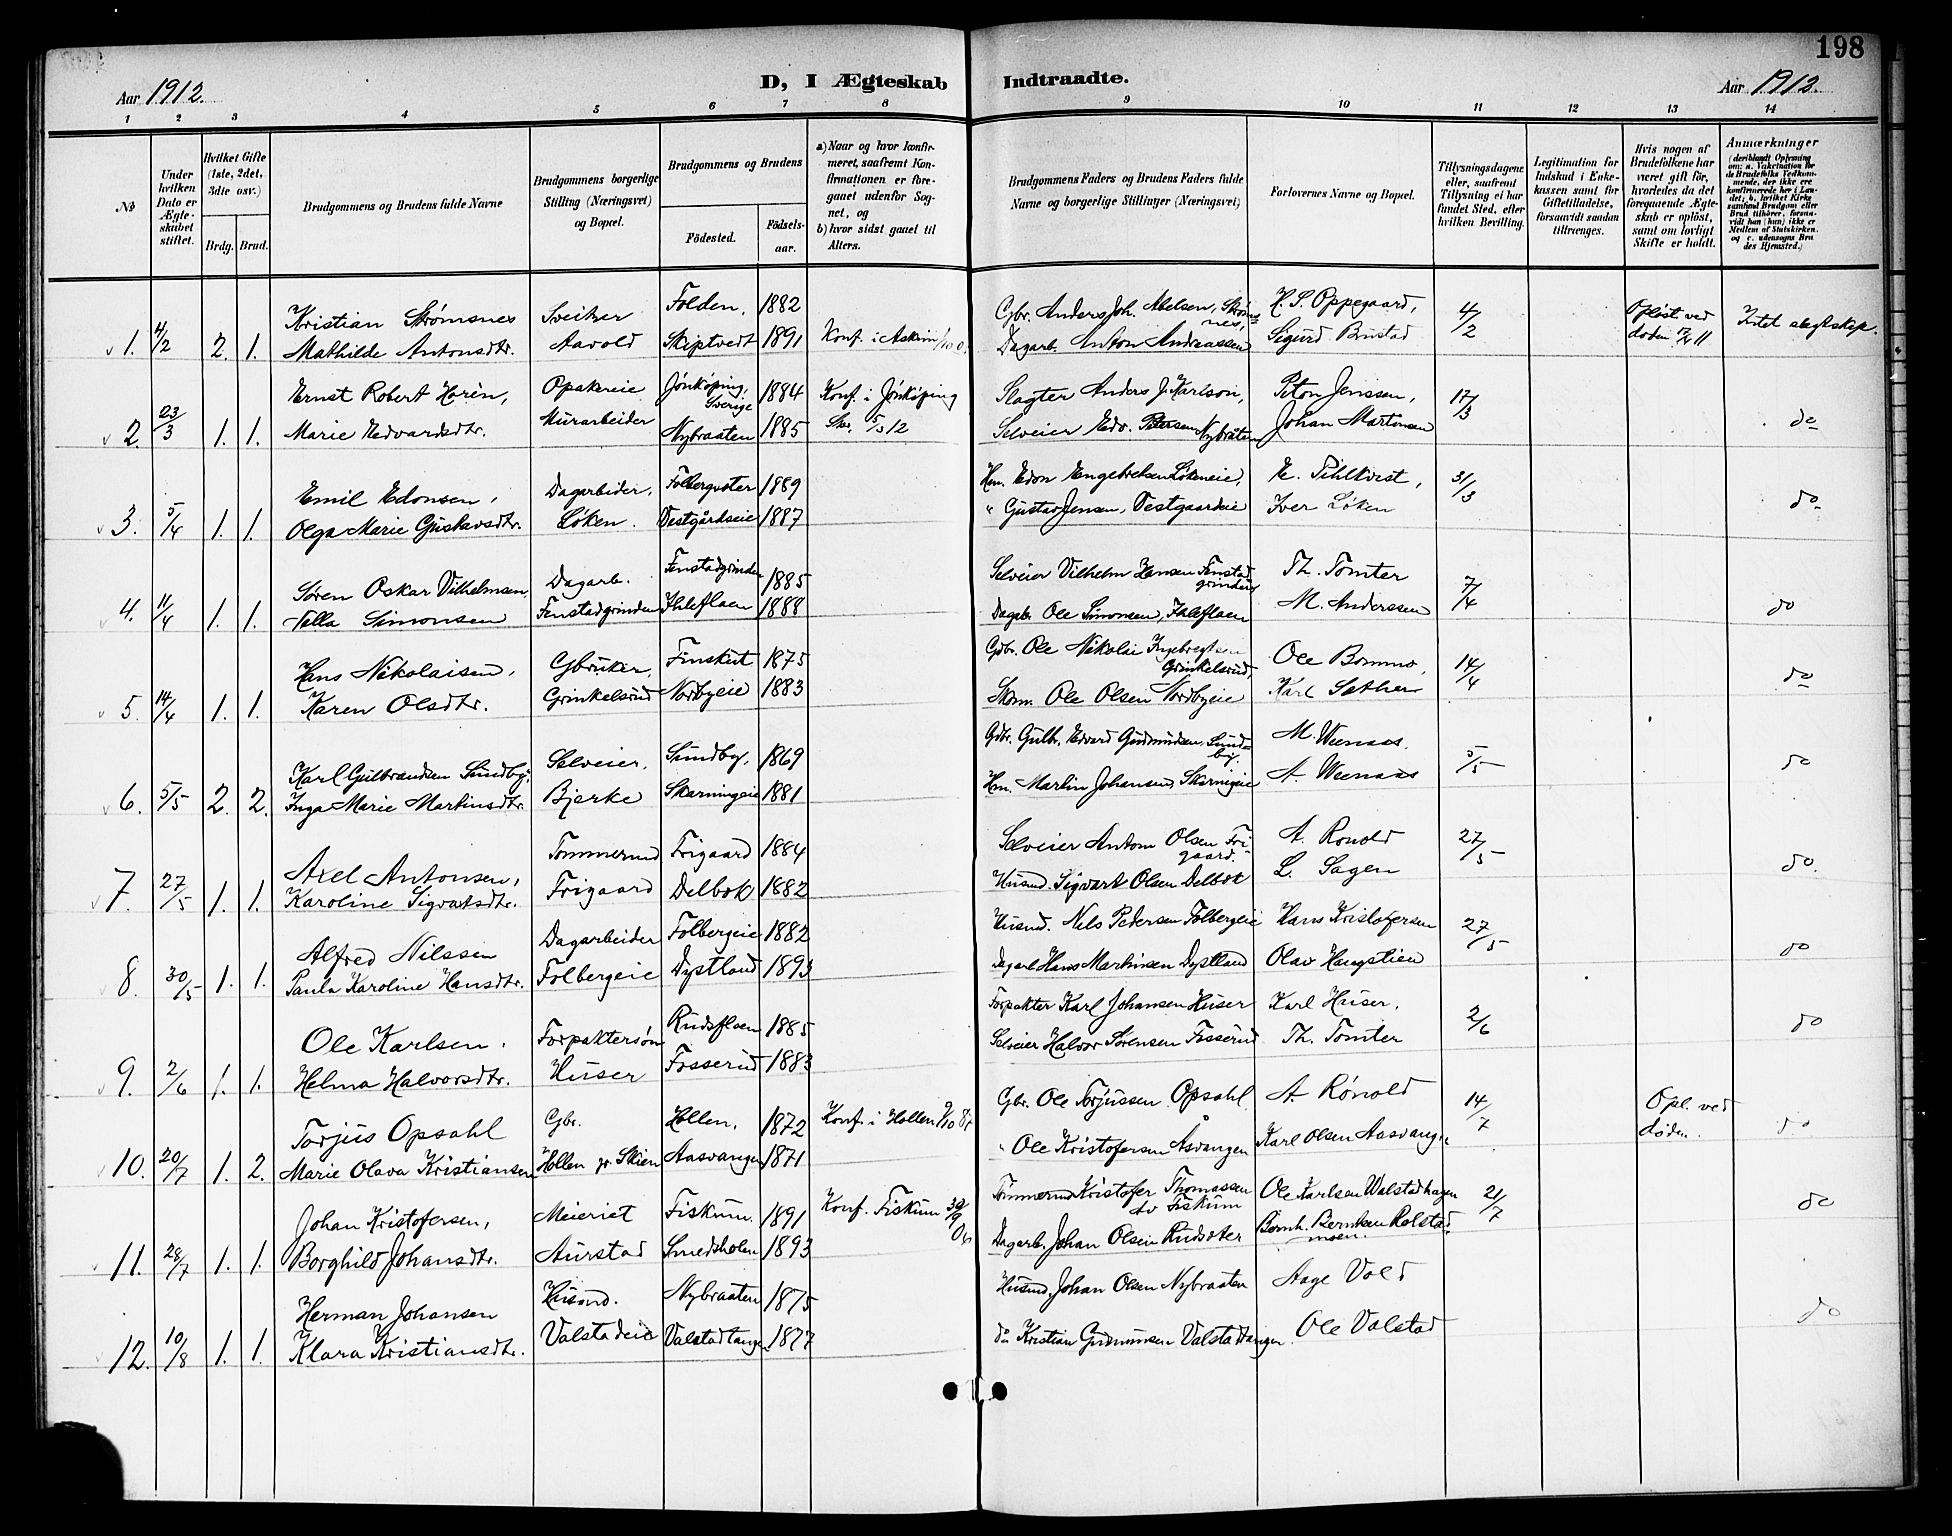 198
Aar 1912.
D, I Ægteskab Indtraadte.
Aar 1912.
1 2 3 4 5 6 7 8 9 10 11 12 13 14
No
Under hvilken Dato er Ægteskabet stiftet.
Hvilket Gifte (1ste, 2det, 3die osv.)
Brdg. Brud.
Brudgommens og Brudens fulde Navne
Brudgommens borgerlige Stilling (Næringsvei) og Bopæl.
Brudgommens og Brudens
Fødested. Fødsels-aar.
a) Naar og hvor konfirmeret, saafremt Konfirmationen er foregaaet udenfor Sognet, og
b) hvor sidst gaaet til Alters.
Brudgommens Faders og Brudens Faders fulde Navne og borgerlige Stillinger (Næringsvei)
Forlovernes Navne og Bopæl.
Tillysningsdagene eller, saafremt Tillysning ei har fundet Sted, efter hvilken Bevilling.
Legitimation for Indskud i Enkekassen samt for Giftetilladelse, forsaavidt saadan tiltrænges.
Hvis nogen af Brudefolkene har været gift før, hvorledes da det foregaaende Ægteskab er opløst, samt om lovligt Skifte er holdt.
Anmærkninger
1. 4/2 2. 1. Kristian Strømsnes Sveitzer Folden, 1882 Gbr. Anders Joh. Abelsen, Strømsnes, H. S. Oppegaard, 4/2 Opløst ved Intet slegtskap.
Mathilde Antonsdtr. Aavold Skiptvedt 1891 Konf. i Askim Dagarb. Anton Andreassen Sigurd Brustad døden
2. 23/3 1. 1. Ernst Robert Horén, Opakereie Jönköping, Sverige 1884 Konf. i Jönköping Slagter Anders J. Karlson, Peton Jenssen, 17/3 do
Marie Edvardsdtr. Murarbeider Nybraaten 1885 Selveier Edv. Petersen Nybråten Johan Martinsen
3. 5/4 1. 1. Emil Edonsen, Dagarbeider, 1889 Hm. Edon Engebretsen Løkeneie, E. Tihlkvist, 31/3 do
Olga Marie Gustavsdtr. Løken. Vestgårdseie 1887 " Gustav Jensen, Vestgaardeie Iver Løken
4. 11/4 1. 1. Søren Oskar Vilhelmsen, Dagarb. Fenstadgrinden 1885 Selveier Vilhelm Hansen Fenstadgrinden Th. Tomter 7/4 do
Simonsen Fenstadgrinden Ihleflaen 1888 Dagarb. Ole Simonsen, Ihleflaen M. Anderssen
5. 14/4 1. 1. Hans Nikolaisen, Gbruker, Finskut 1875 Gdbr. Ole Nikolai Ingebregtsen Grinkelsrud, Ole Bommo 14/4 do
Karen Olsdtr. Grinkelsrud Nordbyeie 1883 Skom. Ole Olsen Nordbyeie Karl Sæther
6. 5/5 2. 2. Karl Gulbrandsen Sundby, Selveier, Sundby, 1869 Gdbr. Gulb. Edvard Gudmundsen Sundby. M. Weenaas. 5/5 do
Inga Marie Martinsdtr. Bjerke Skarningeie 1881 Hm. Martin Johansen, Skarnigeie A. Weenaas
7. 27/5 1. 1. Axel Antonsen, Tømmermd Frigaard 1884 Selveier Anton Olsen Frigaard. A. Ronold 27/5 do.
Karoline Sigvartsdtr. Frigaard Delbok 1882 Husmd. Sigvart Olsen Delbok L. Sagen
8. 30/5 1. 1. Alfred Nilssen Dagarbeider Folbergeie 1882 Husmd. Nils Pedersen Folbergeie Hans Kristofersen 27/5 do
Paula Karoline Hansdtr. Folbergeie Dystland 1893 Dagarb Hans Martinsen Dystland Olav Haugstien
9. 2/6 1. 1. Ole Karlsen, Forpaktersøn Rudsflaen 1885 Forpakter Karl Johansen Huser Karl Huser, 2/6 do
Helma Halvorsdtr. Huser Fosserud 1883 Selveier Halvor Sørensen Fosserud Th. Tomter
10. 20/7 1. 2. Torjus Opsahl Gbr. Hollen, 1872 Konf. i Hollen Gbr. Ole Torjussen Opsahl A. Rønold 14/7 Opl. ved døden. do
Marie Olava Kristiansen Hollen pr. Skien Aasvangen 1871 " Ole Kristofersen Åsvangen Karl Olsen Aasvangen
11. 28/7 1. 1. Johan Kristofersen, Meieriet Fiskum. 1891 Konf. Fiskum Tømmermd Kristofer Thomassen Fiskum Ole Karlsen Walstadhagen 21/7 do
Borghild Johansdtr. Aurstad Smedsholen 1893 Dagarb. Johan Olsen Rudsæter Bernh. Berntsen Rolstadmoen.
12. 10/8 1. 1. Herman Johansen Husmd. Nybraaten 1875 Husmd. Johan Olsen Nybraaten Aage Vold do
Klara Kristiansdtr. Valstadeie Valstadtangen 1877 do Kristian Gudmunsen Valstadtangen Ole Valstad